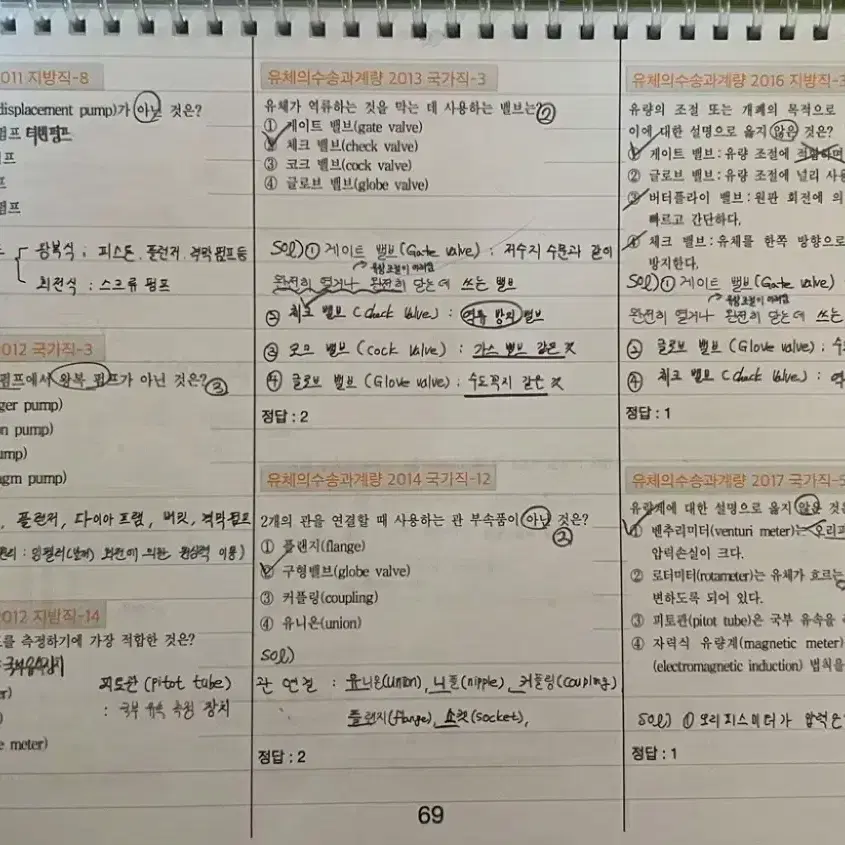 011 지방직-8
displacement pump)가 아닌 것은?
펌프 터빈펌프
펌프
프
펌프
왕복식 : 피스톤, 플런저, 격막 펌프 등
회전식 : 스크류 펌프
012 국가직-3
펌프에서 왕복 펌프가 아닌 것은? ③
ger pump)
on pump)
ump)
agm pump)
, 플런저, 다이아프램, 버킷, 격막펌프
원리 : 임펠러(날개) 회전에 의한 원심력 이용)
2012 지방직-14
를 측정하기에 가장 적합한 것은?
국부유속측정
er)
피토관 (pitot tube)
)
: 국부 유속 측정 장치
e meter)
유체의수송과계량 2013 국가직-3
유체가 역류하는 것을 막는 데 사용하는 밸브는? ②
① 게이트 밸브(gate valve)
② 체크 밸브(check valve)
③ 코크 밸브(cock valve)
④ 글로브 밸브(globe valve)
Sol) ① 게이트 밸브(Gate valve) : 저수지 수문과 같이
유량조절이 어려움
완전히 열거나 완전히 닫는데 쓰는 밸브
② 체크 밸브 (Check Valve) : 역류 방지 밸브
③ 코크 밸브 (Cock Valve) : 가스 밸브 같은 것
④ 글로브 밸브 (Glove valve) : 수도꼭지 같은 것
정답 : 2
유체의수송과계량 2014 국가직-12
2개의 관을 연결할 때 사용하는 관 부속품이 아닌 것은?
②
① 플랜지(flange)
② 구형밸브(globe valve)
③ 커플링(coupling)
④ 유니온(union)
Sol)
관 연결 : 유니온(union), 니플(nipple), 커플링(coupling)
플랜지(flange), 소켓(socket),
정답 : 2
유체의수송과계량 2016 지방직-3
유량의 조절 또는 개폐의 목적으로
이에 대한 설명으로 옳지 않은 것은?
① 게이트 밸브 : 유량 조절에 적합하며
② 글로브 밸브 : 유량 조절에 널리 사용
③ 버터플라이 밸브 : 원판 회전에 의
빠르고 간단하다.
④ 체크 밸브 : 유체를 한쪽 방향으로
방지한다.
Sol) ① 게이트 밸브(Gate valve)
유량조절이 어려움
완전히 열거나 완전히 닫는데 쓰는
② 글로브 밸브 (Glove valve) : 수
④ 체크 밸브 (Check Valve) : 역
정답 : 1
유체의수송과계량 2017 국가직-5
유량계에 대한 설명으로 옳지 않은 것은
① 벤추리미터(venturi meter)는 오리피
압력손실이 크다.
② 로터미터(rotameter)는 유체가 흐르는
변하도록 되어 있다.
③ 피토관(pitot tube)은 국부 유속을
④ 자력식 유량계(magnetic meter)
(electromagnetic induction) 법칙을
Sol) ① 오리피스미터가 압력손
정답 : 1
69